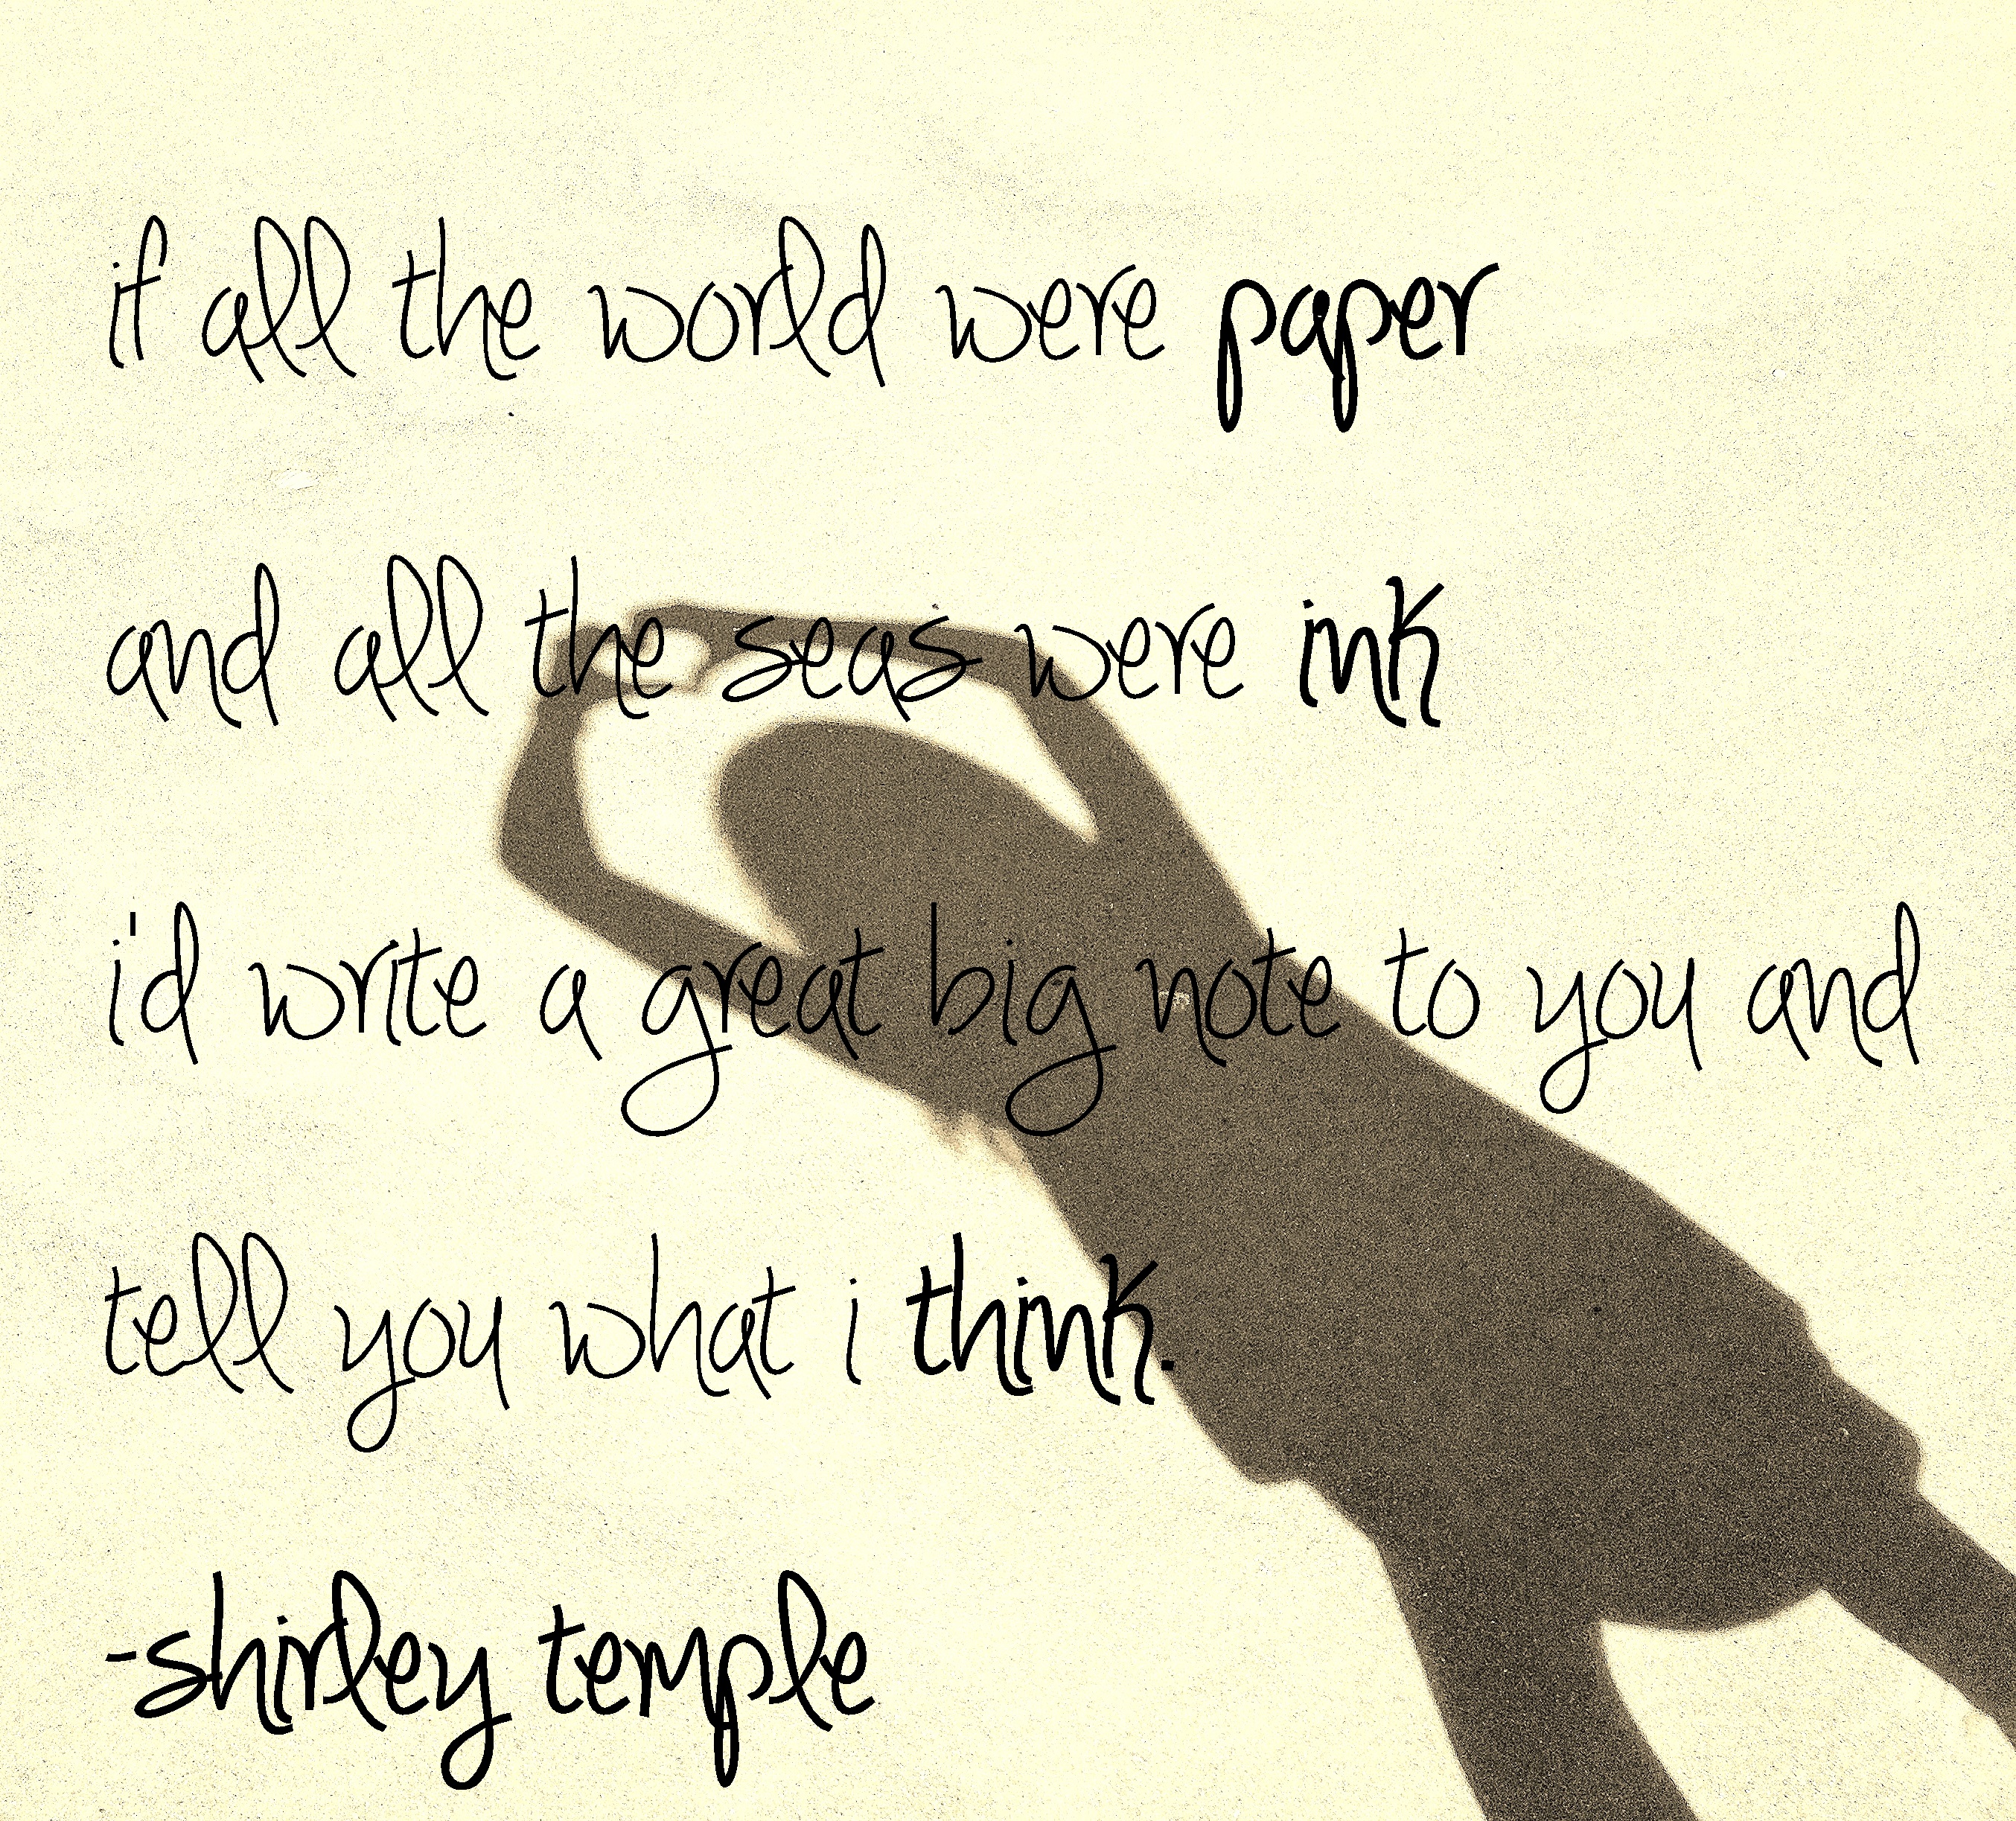 if all the world were paper
and all the seas were ink
i'd write a great big note to you and
tell you what i think.
-shirley temple